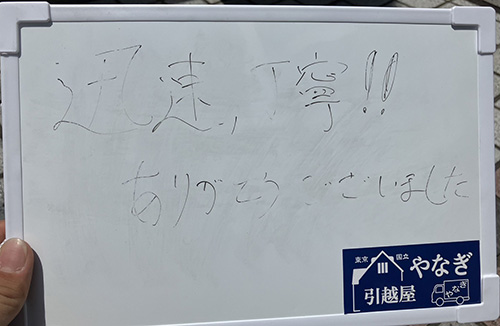 迅速、丁寧!!
ありがとうございました
東京 国立 やなぎ
引越屋 やなぎ